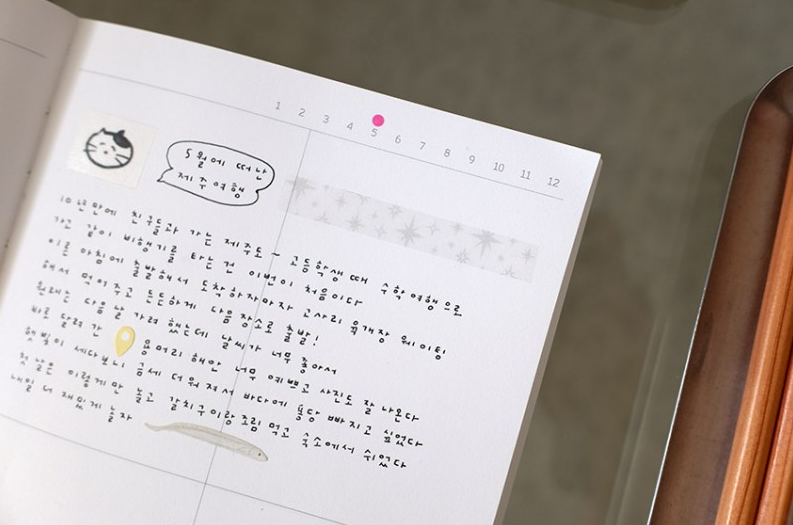 1 2 3 4 5 6 7 8 9 10 11 12
5월에 떠난
제주여행
10년만에 친구들과 가는 제주도 ~ 고등학생 때 수학여행으로
가고 같이 비행기를 타는 건 이번이 처음이다
이른 아침에 출발해서 도착하자마자 고사리 육개장 웨이팅
해서 먹어주고 든든하게 다음 장소로 출발!
원래는 다음날 가려 했는데 날씨가 너무 좋아서
바로 달려간 용머리 해안 너무 예뻤고 사진도 잘 나온다
햇빛이 세다보니 금세 더워져서 바다에 퐁당 빠지고 싶었다
첫 날은 이렇게만 놀고 갈치구이랑 조림 먹고 숙소에서 쉬었다
내일 더 재밌게 놀자